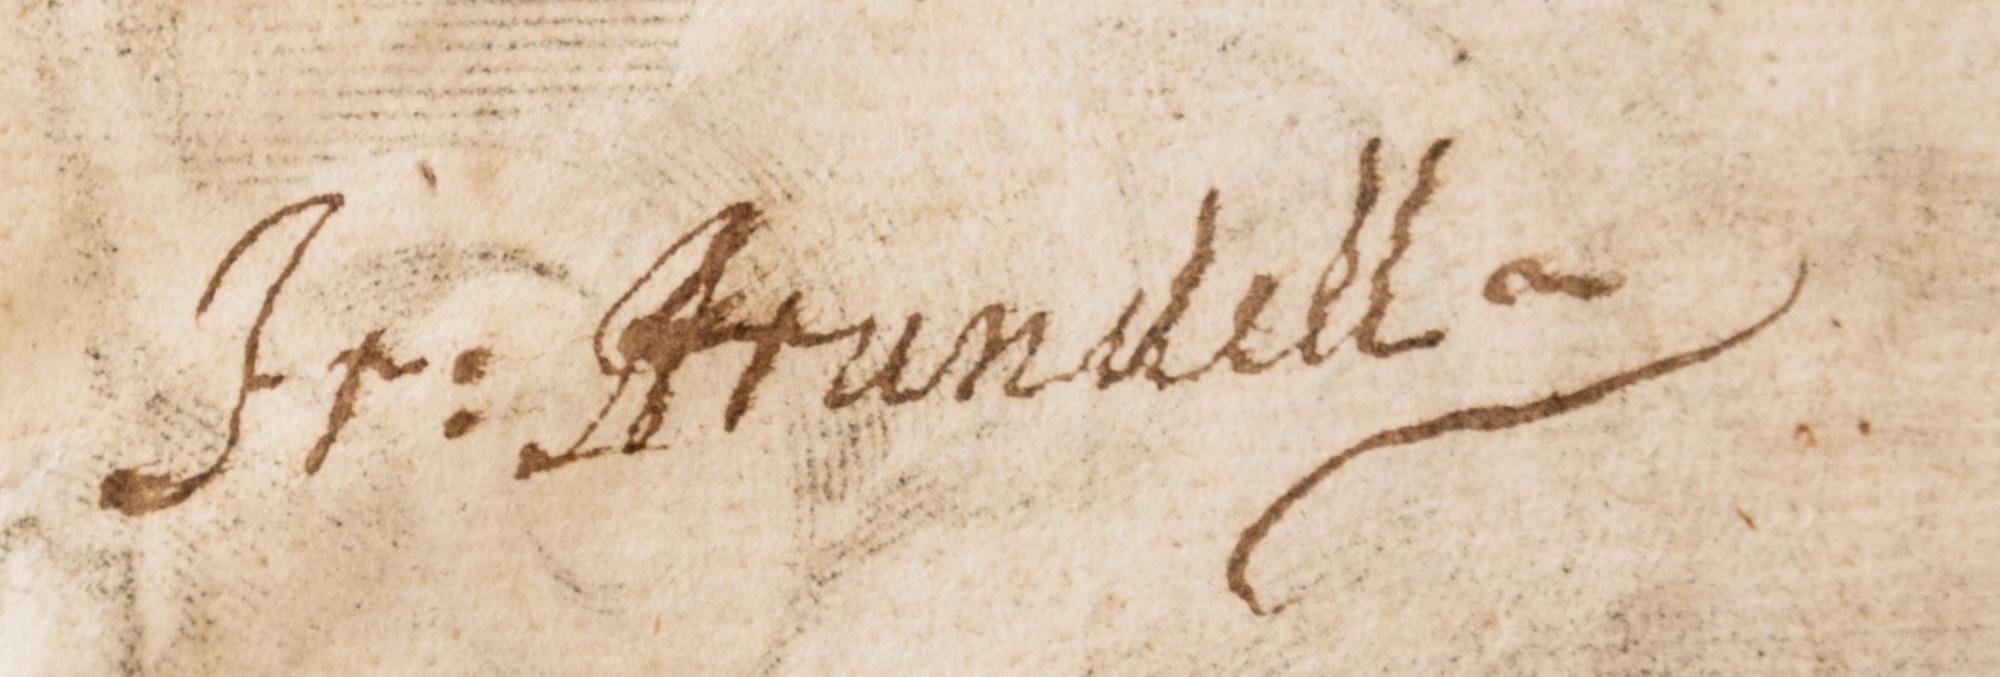 Fr: Arundell